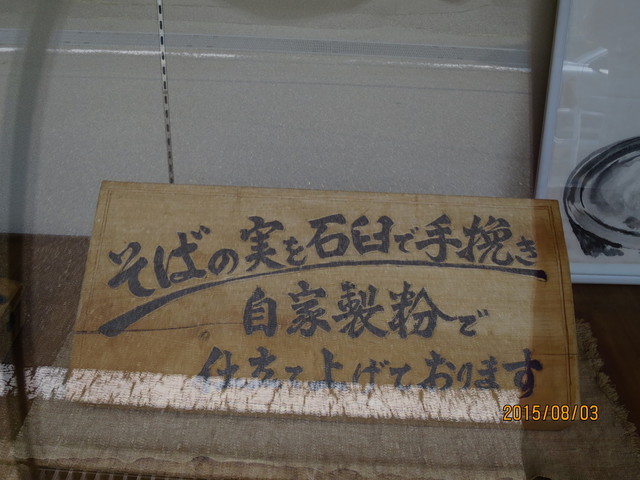 そばの実を石臼で手挽き
自家製粉で
仕立て上げております
2015/08/03